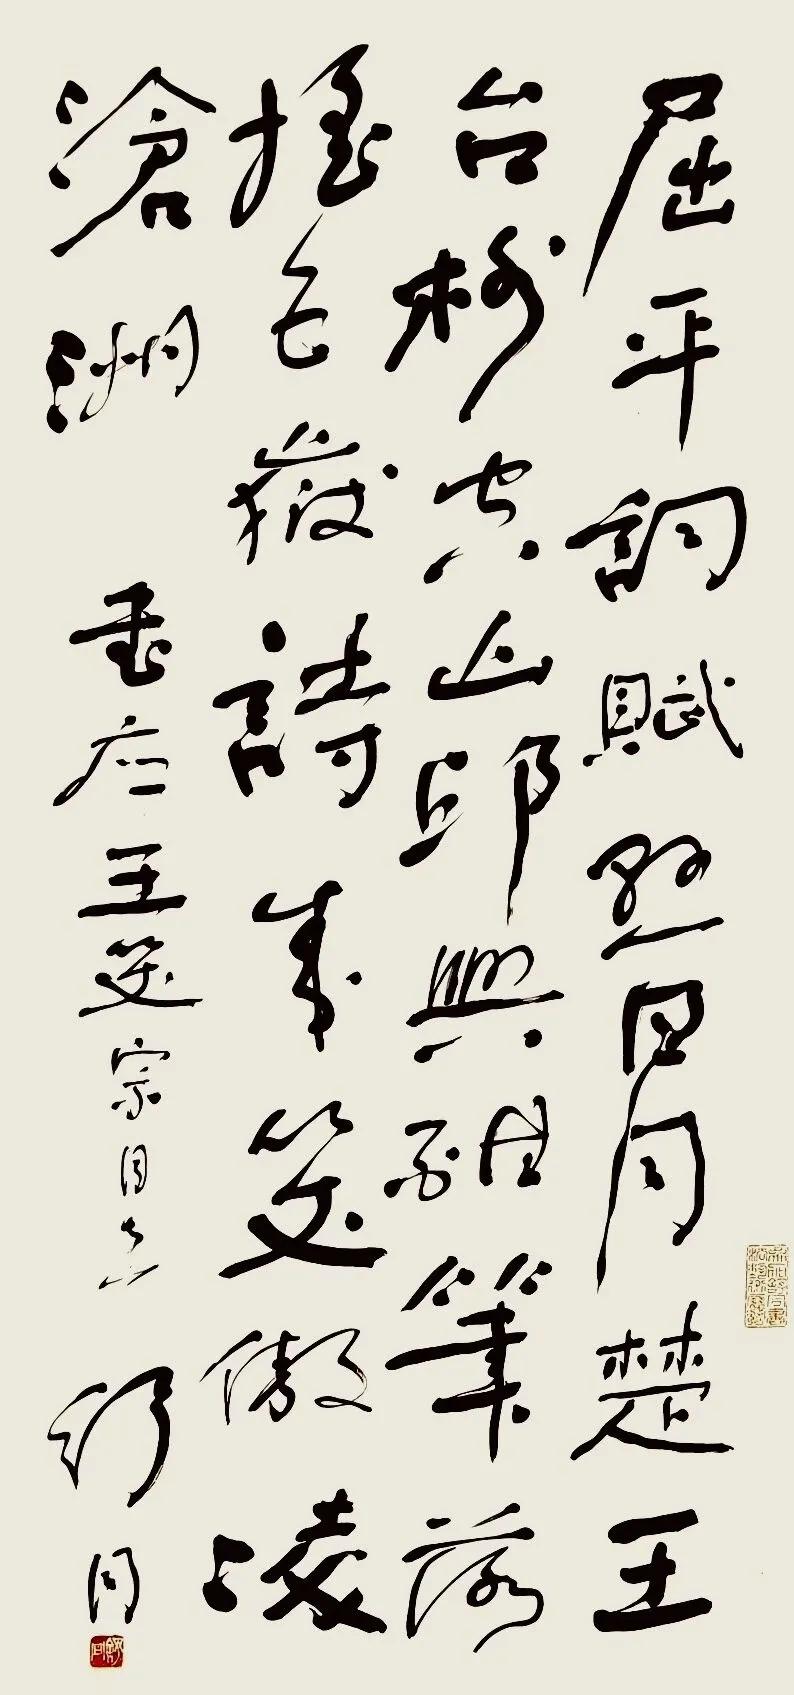 屈平詞賦懸日月楚王
台榭空山邱興酣筆落
搖五嶽詩成笑傲凌
滄洲
書應王笑宗同志
舒同